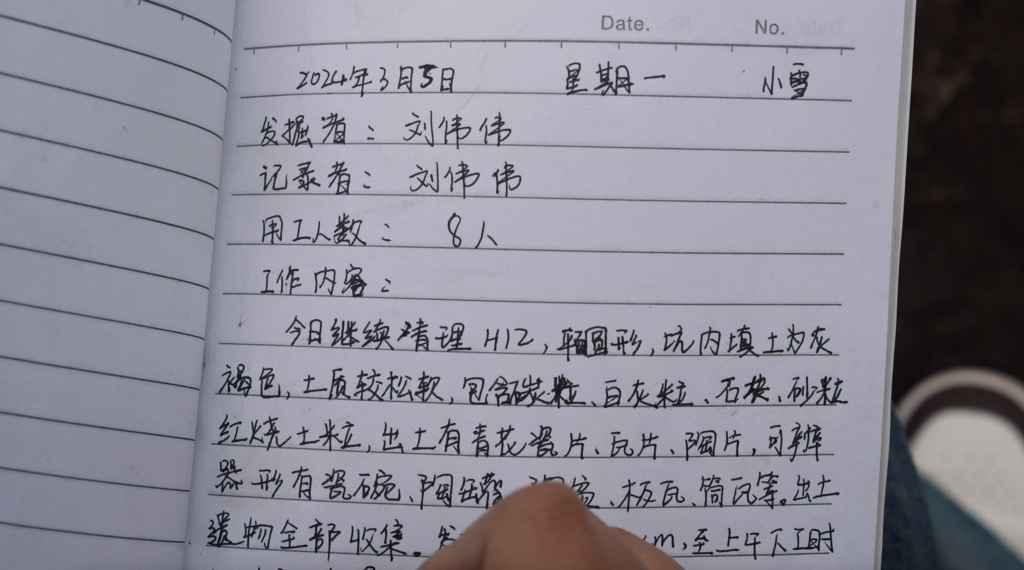 Date. No.
2024年3月5日 星期一 小雪
发掘者：刘伟伟
记录者：刘伟伟
用工人数：8人
工作内容：
今日继续清理H12，椭圆形，坑内填土为灰
褐色，土质较松软，包含碳粒、白灰粒、石块、砂粒
红烧土粒，出土有青花瓷片、瓦片、陶片，可辨
器形有瓷碗、陶罐、板瓦、筒瓦等。出土
遗物全部收集。 cm，至上午下工时